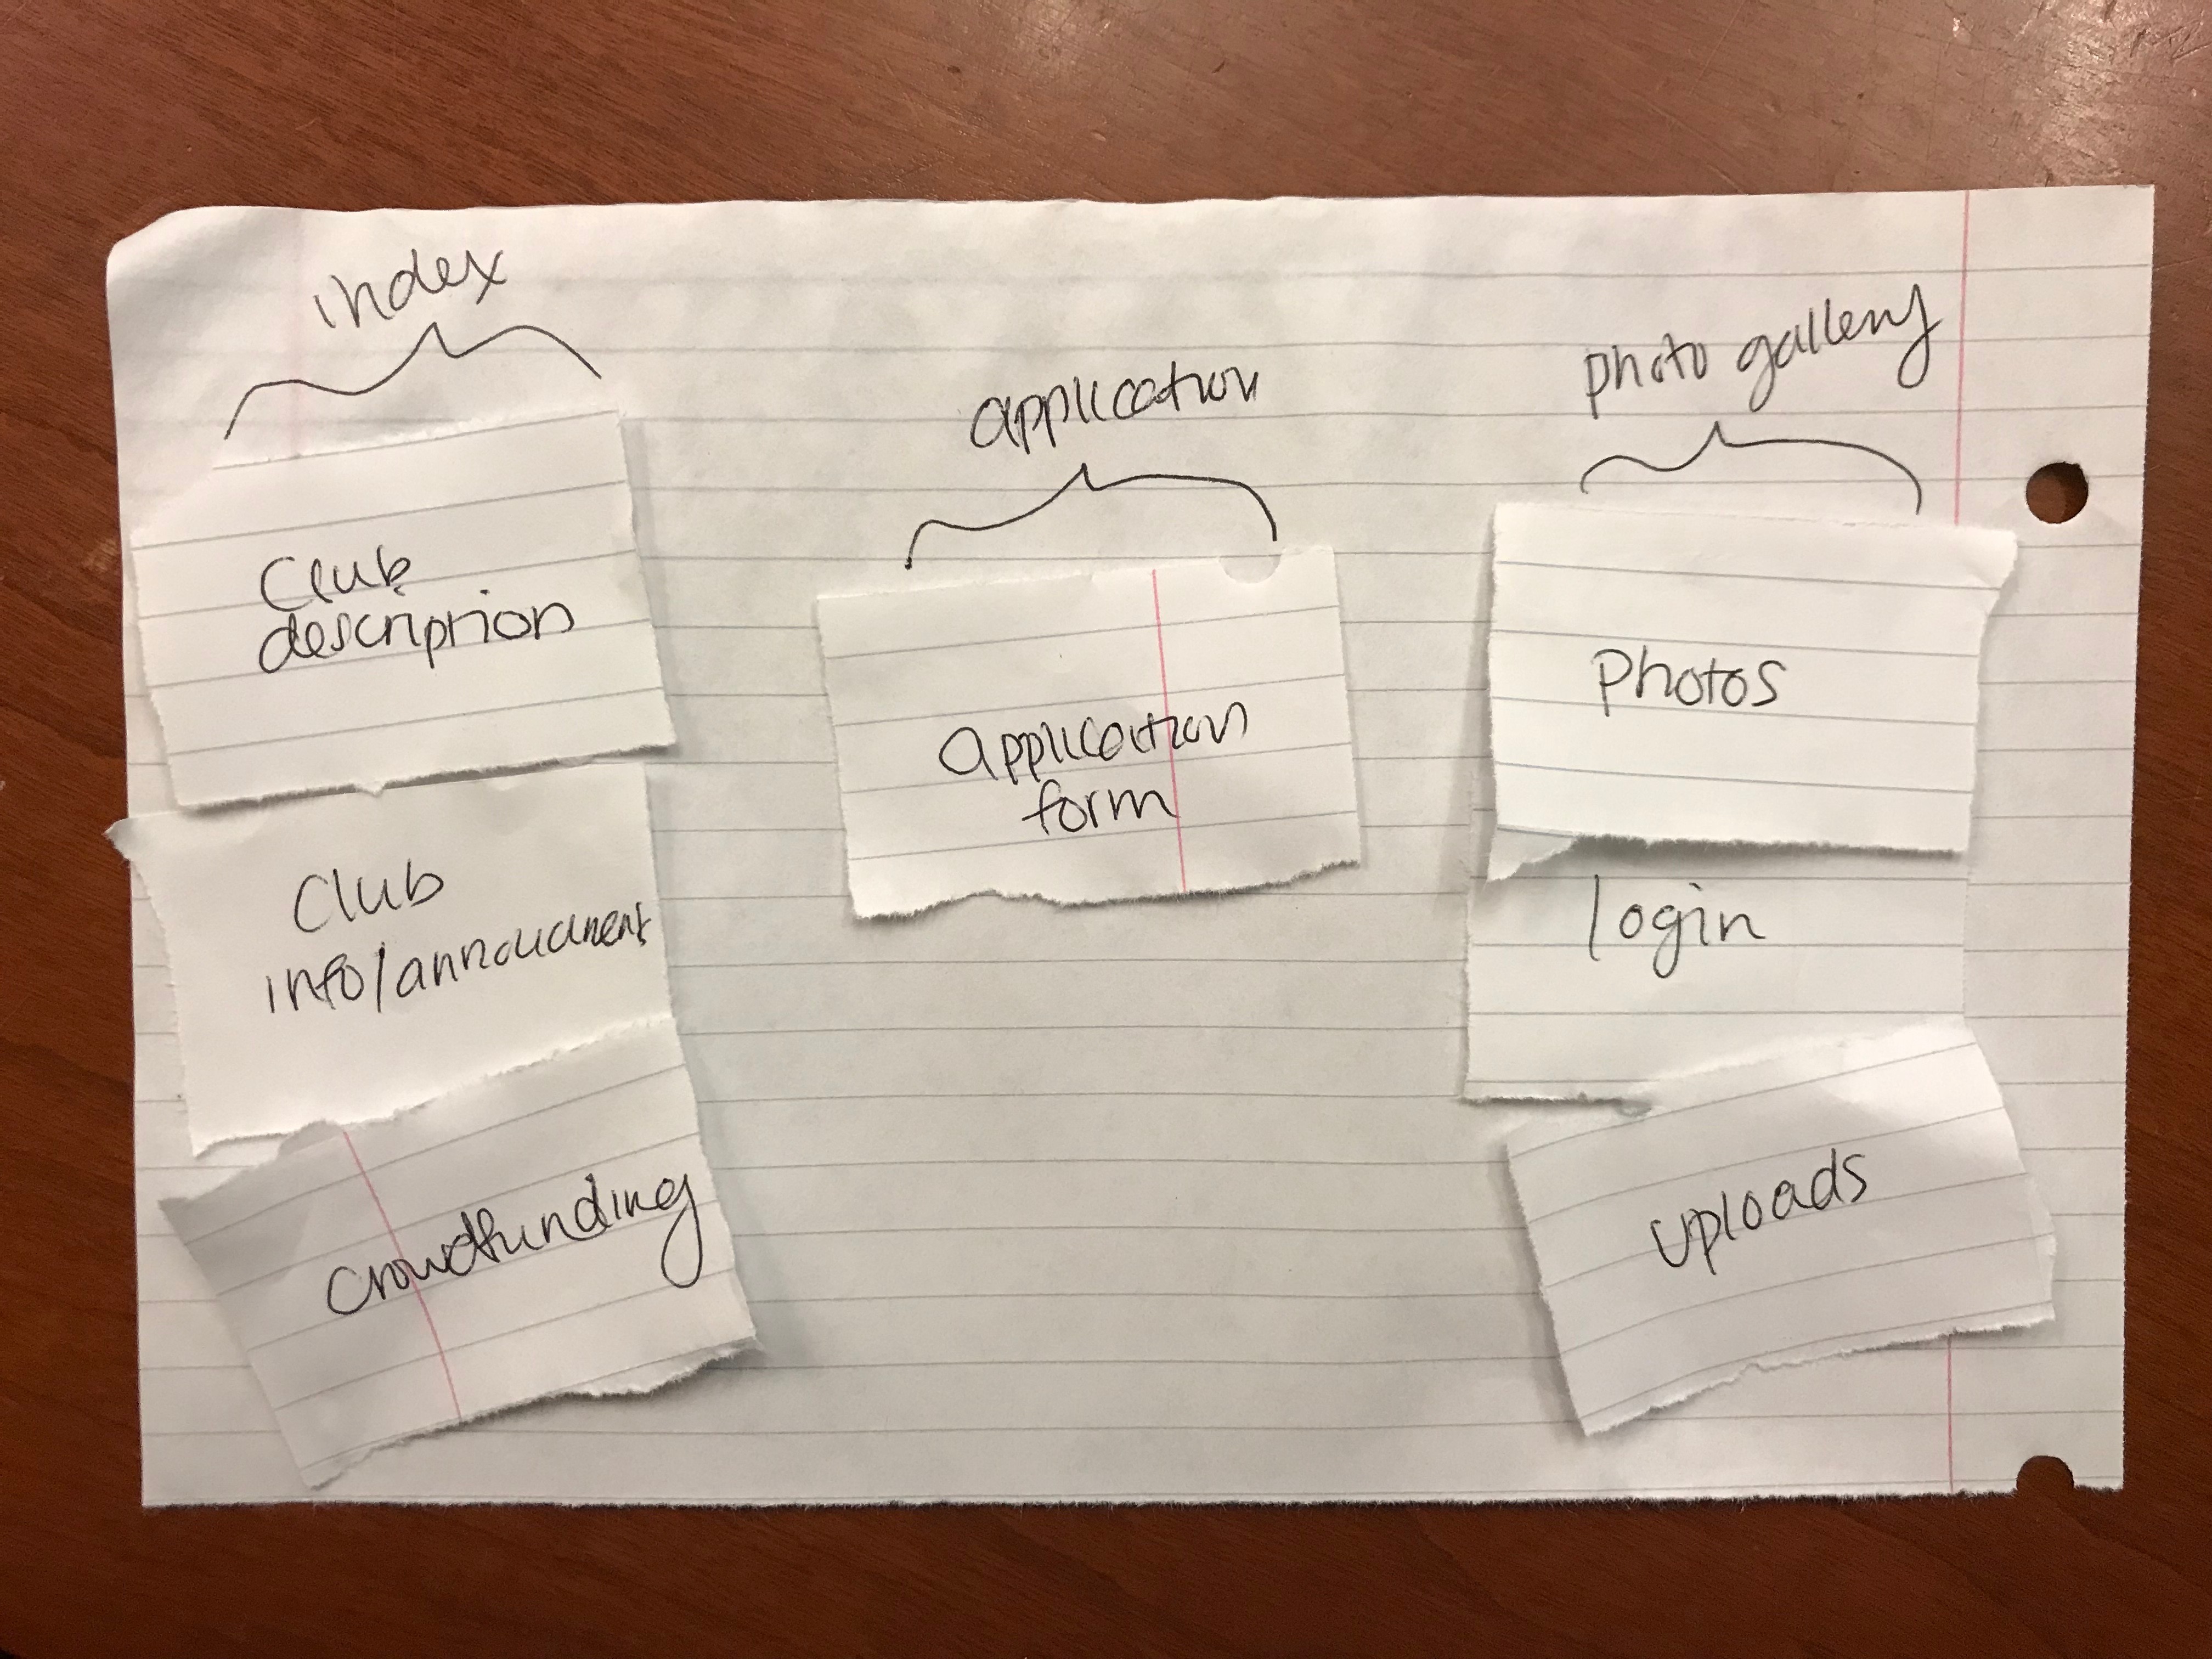 index
Club
description
Club
info/annoucment
crowdfunding
application
application
form
photo gallery
Photos
login
uploads